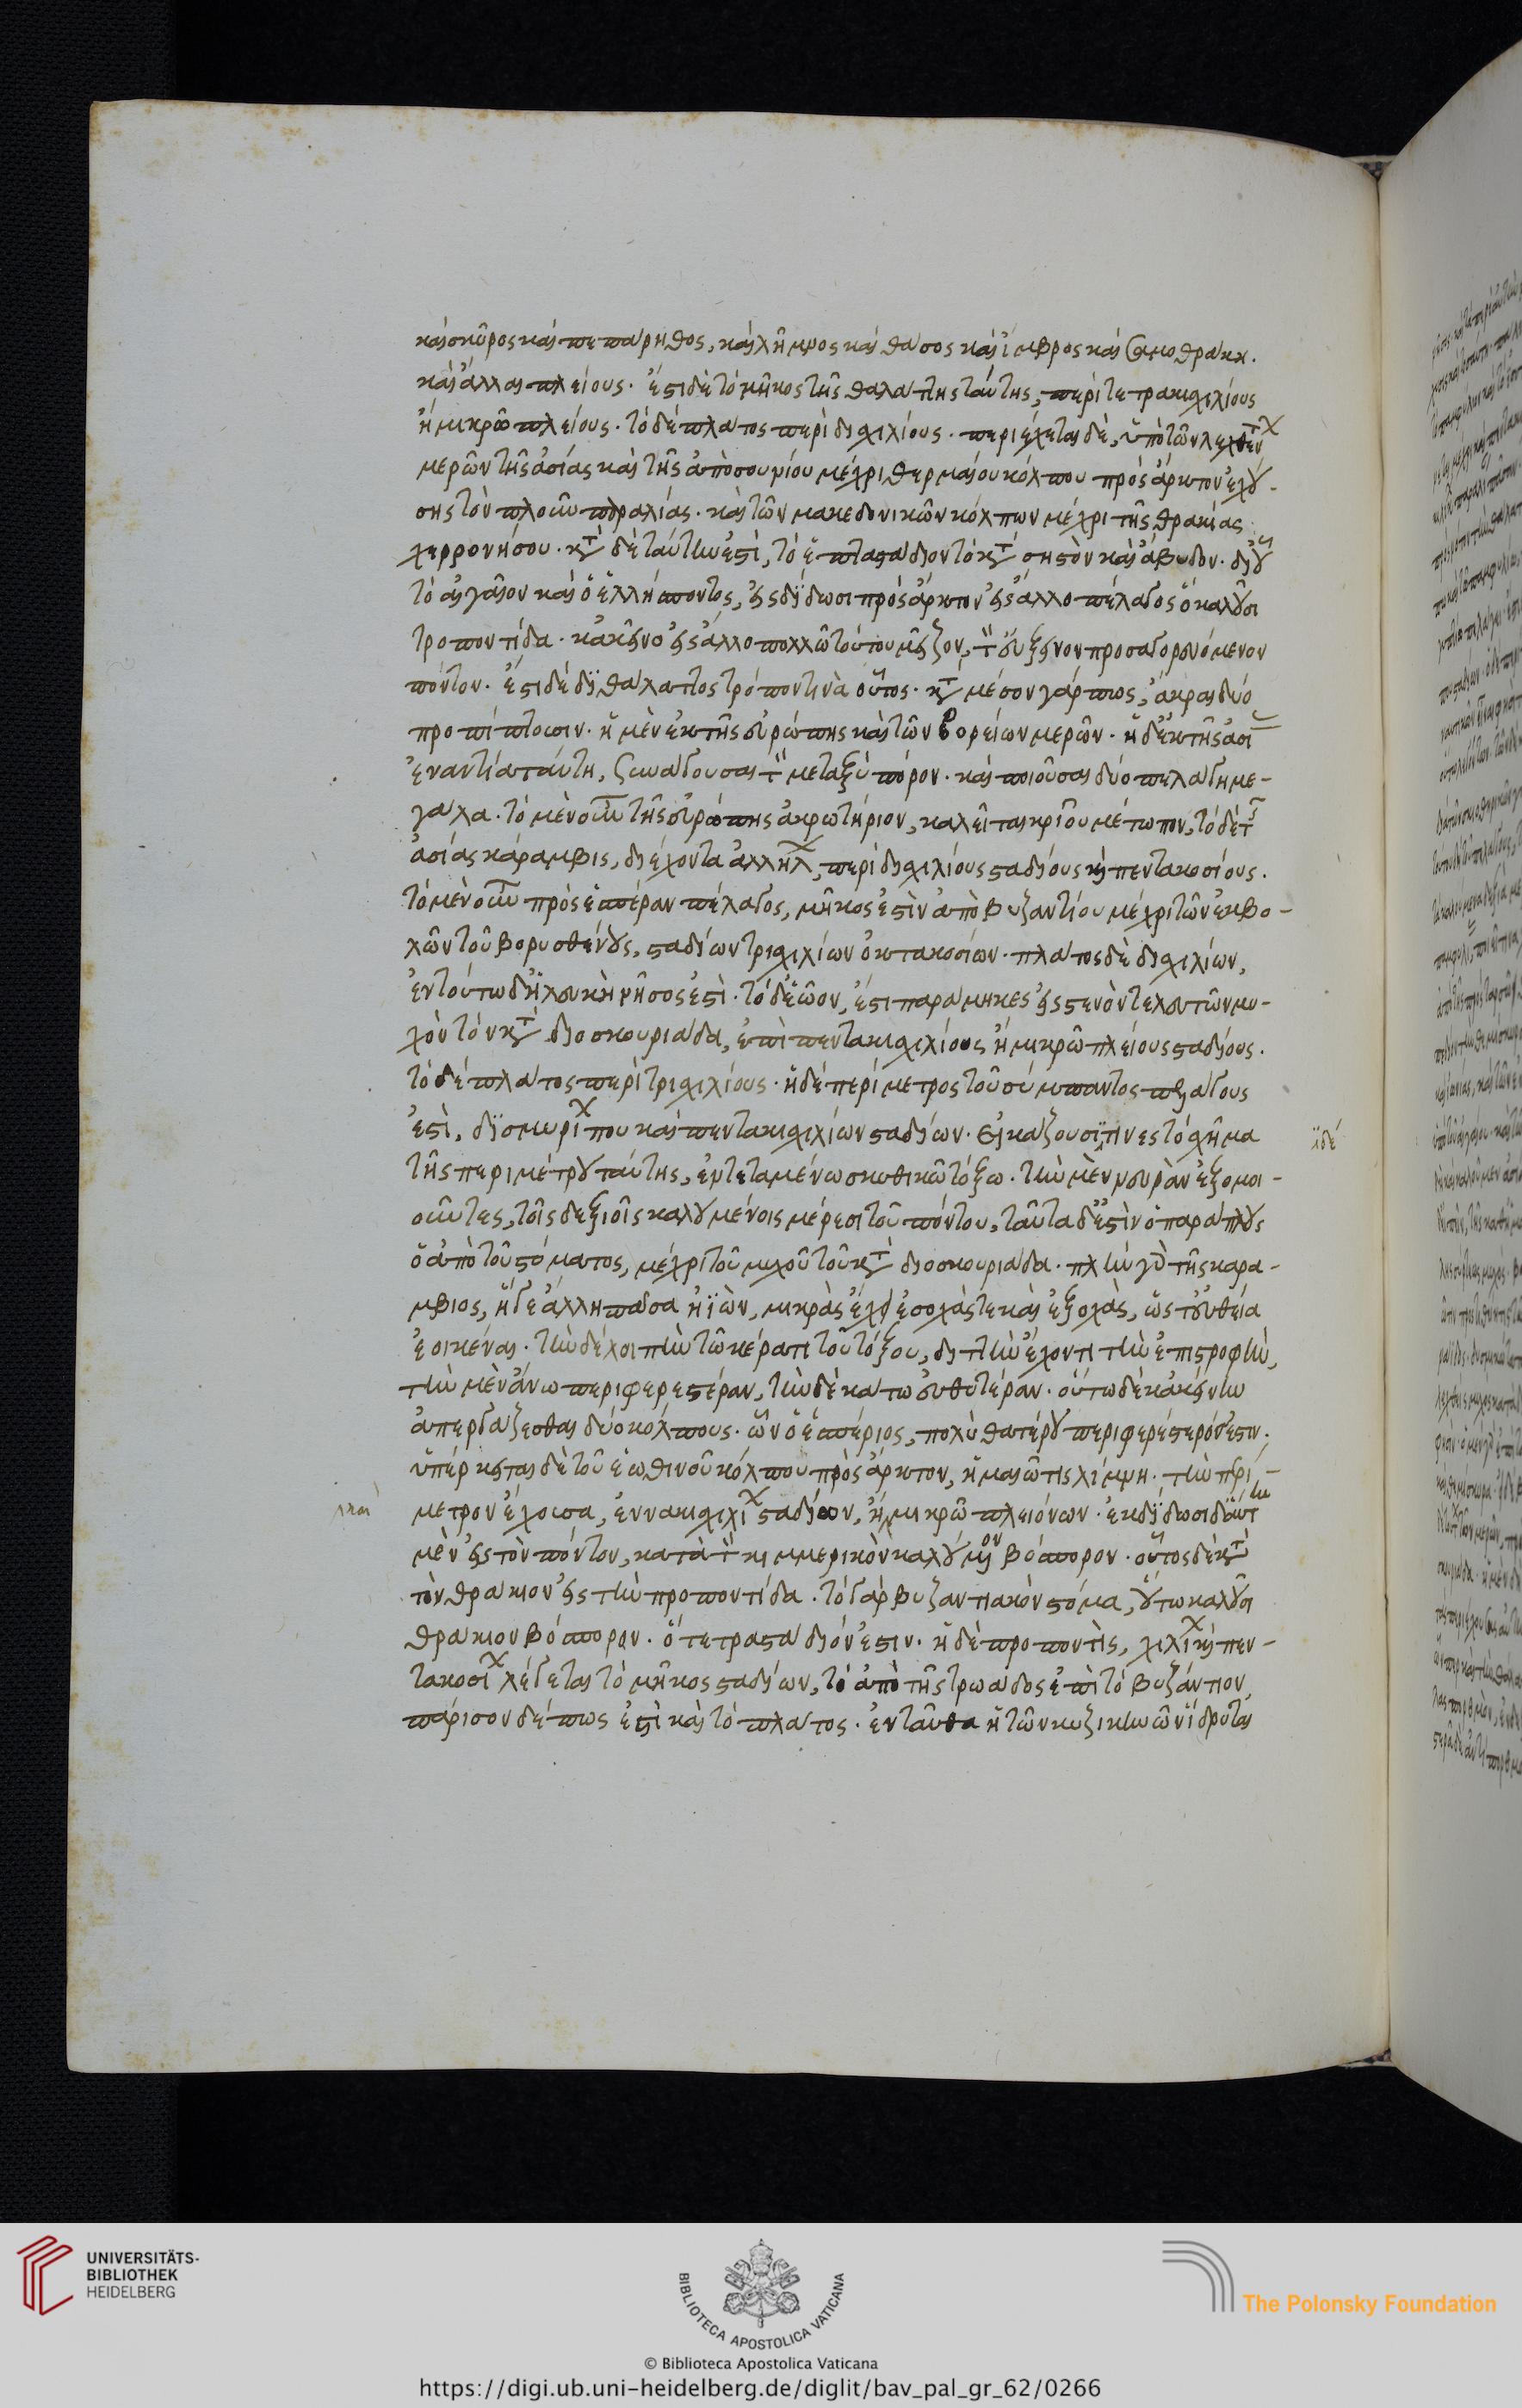 καὶ σκῦρος καὶ πεπάρηθος, καὶ λῆμνος καὶ θάσος καὶ ἴμβρος καὶ σαμοθράκη.
καὶ ἄλλαι πλείους. ἔστι δὲ τὸ μῆκος τῆς θαλάττης ταύτης, περὶ τετρακισχιλίους
ἢ μικρῷ πλείους. τὸ δὲ πλάτος περὶ δισχιλίους. περιέχεται δὲ, ὑπὸ τῶν λεχθέντ
μερῶν τῆς ἀσίας καὶ τῆς ἀπὸ σουνίου μέχρι θερμαίου κόλπου πρὸς ἄρκτον ἐχού-
σης τὸν πλοῦν παραλίας. καὶ τῶν μακεδονικῶν κόλπων μέχρι τῆς θρακίας
χερρονήσου. κατὰ δὲ ταύτην ἐστὶ, τὸ ἑπταστάδιον τὸ κατὰ σηστὸν καὶ ἄβυδον. δι' οὗ
τὸ αἰγαῖον καὶ ὁ ἑλλήσποντος, ἐκδίδωσι πρὸς ἄρκτον εἰς ἄλλο πέλαγος ὃ καλοῦσι
προποντίδα. κἀκεῖνο εἰς ἄλλο πολλῷ τούτου μεῖζον, τὸν εὔξεινον προσαγορευόμενον
πόντον. ἔστι δὲ διθάλαττος τρόπον τινὰ οὗτος. κατὰ μέσον γάρ πως, ἄκραι δύο
προπίπτουσιν. ἡ μὲν ἐκ τῆς εὐρώπης καὶ τῶν βορείων μερῶν. ἡ δ' ἐκ τῆς ἀσί
ἐναντία ταύτῃ, συνάγουσαι τὸν μεταξὺ πόρον. καὶ ποιοῦσαι δύο πελάγη με-
γάλα. τὸ μὲν οὖν τῆς εὐρώπης ἀκρωτήριον, καλεῖται κριοῦ μέτωπον, τὸ δὲ τῆς
ἀσίας κάραμβις, διέχοντα ἀλλήλ, περὶ δισχιλίους σταδίους καὶ πεντακοσίους.
τὸ μὲν οὖν πρὸς ἑσπέραν πέλαγος, μῆκος ἐστὶν ἀπὸ βυζαντίου μέχρι τῶν ἐκβο-
λῶν τοῦ βορυσθένους, σταδίων τρισχιλίων ὀκτακοσίων. πλάτος δὲ δισχιλίων,
ἐν τούτῳ δ' ἡ λευκὴ νῆσος ἐστὶ. τὸ δ' ἑῷον, ἔστι παράμηκες εἰς στενὸν τελευτῶν μυ-
χὸν τὸν κατὰ διοσκουριάδα, ἐπὶ πεντακισχιλίους ἢ μικρῷ πλείους σταδίους.
τὸ δὲ πλάτος περὶ τρισχιλίους. ἡ δὲ περίμετρος τοῦ σύμπαντος πελάγους
ἐστὶ, δισμυρί που καὶ πεντακισχιλίων σταδίων. εἰκάζουσί τινες τὸ σχῆμα
τῆς περιμέτρου ταύτης, ἐντεταμένῳ σκυθικῷ τόξῳ. τὴν μὲν νευρὰν ἐξομοι-
οῦντες, τοῖς δεξιοῖς καλουμένοις μέρεσι τοῦ πόντου, ταῦτα δ' ἐστὶν ὁ παράπλους
ὁ ἀπὸ τοῦ στόματος, μέχρι τοῦ μυχοῦ τοῦ κατὰ διοσκουριάδα. πλὴν γὰρ τῆς καρά-
μβιος, ἥγε ἄλλη πᾶσα ἠϊὼν, μικρὰς ἔχει ἐσοχάς τε καὶ ἐξοχὰς, ὥστ' εὐθεία
ἐοικέναι. τὴν δὲ λοιπὴν τῷ κέρατι τοῦ τόξου, διττὴν ἔχοντι τὴν ἐπιστροφὴν,
τὴν μὲν ἄνω περιφερεστέραν, τὴν δὲ κάτω εὐθυτέραν. οὕτω δὲ κἀκείνην
ἀπεργάζεσθαι δύο κόλπους. ὧν ὁ ἑσπέριος, πολὺ θατέρου περιφερέστερός ἐστιν.
ὑπέρκειται δὲ τοῦ ἑωθινοῦ κόλπου πρὸς ἄρκτον, ἡ μαιῶτις λίμνη. τὴν περί-
μετρον ἔχουσα, ἐννακισχιλί σταδίων, ἢ μικρῷ πλειόνων. ἐκδίδωσι δ' αὐτὴ
μὲν εἰς τὸν πόντον, κατὰ τὸν κιμμερικὸν καλούμενον βόσπορον. οὗτος δὲ κατὰ
τὸν θράκιον εἰς τὴν προποντίδα. τὸ γὰρ βυζαντιακὸν στόμα, οὕτω καλοῦσι
θράκιον βόσπορον. ὃ τετραστάδιόν ἐστιν. ἡ δὲ προποντὶς, χιλί καὶ πεν-
τακοσί λέγεται τὸ μῆκος σταδίων, τὸ ἀπὸ τῆς τρωάδος ἐπὶ τὸ βυζάντιον,
πάρισον δέ πως ἐστὶ καὶ τὸ πλάτος. ἐνταῦθα ἡ τῶν κυζικηνῶν ἵδρυται
ἰδέ
UNIVERSITÄTS-
BIBLIOTHEK
HEIDELBERG
BIBLIOTECA APOSTOLICA VATICANA
The Polonsky Foundation
© Biblioteca Apostolica Vaticana
https://digi.ub.uni-heidelberg.de/diglit/bav_pal_gr_62/0266